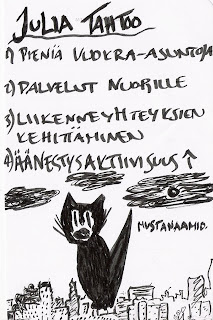 JULIA TAHTOO
1) PIENIÄ VUOKRA-ASUNTOJA
2) PALVELUT NUORILLE
3) LIIKENNEYHTEYKSIEN
KEHITTÄMINEN
4) ÄÄNESTYSAKTIIVISUUS ↑
MUSTANAAMIO.